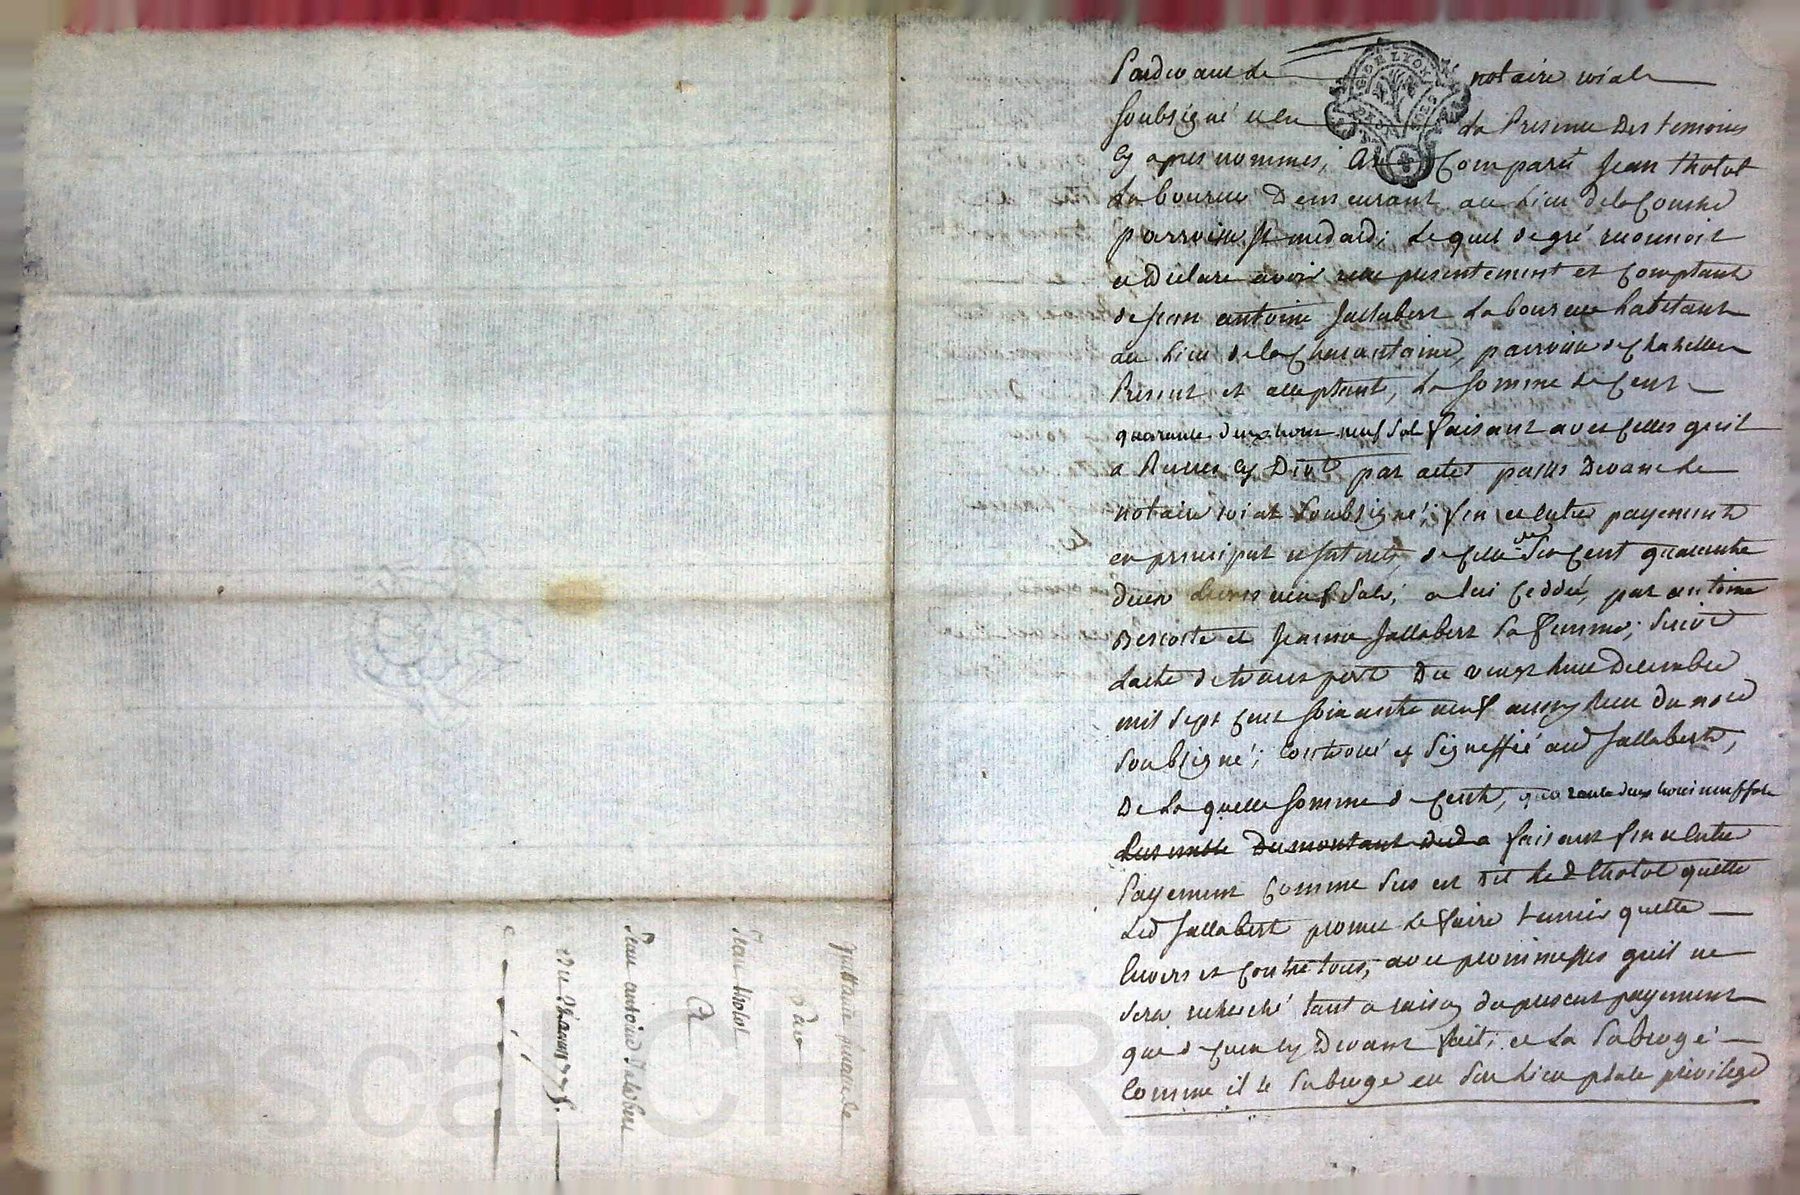 Pardevant le notaire roial
soubsigné et en la presence des temoins
cy apres nommes, a comparu Jean tholot
laboureur demeurant au lieu de la Couche
parroisse st medard; lequel de gré reconnoit
et declare avoir reçu presentement et comptant
de jean antoine Jallabert laboureur habitant
au lieu de la parroisse de Chazelles
Present et acceptant, la somme de cent
quarante deux livres neuf sols faisant avec celles quil
a reçues cy devt par actes passés devant le
notaire roial soubsigné; fin et entier payement
en principal et interets, de celle de six cent quarante
deux livres neuf sols; a lui ceddée, par antoine
et Jeanne Jallabert sa femme; suivt
lacte de transport du vingt huit Decembre
mil sept cent soixante neuf aussy reçu du nore
soubsigné; controlé et signiffié aud Jallabert,
De laquelle somme de cent, quarante deux livres neuf sols
faisant fin et entier
payement comme sus est dit led thotot quitte
Led Jallabert promet le faire tenir quitte
envers et contre tous, avec promesses quil ne
sera recherché tant a raison du present payement
que de ceux cy devant fait; et la subrogé
Comme il le subroge en son lieu place privilege
quittance finale
par
Jean tholot
A
Jean antoine Jalabert
Du 1775.
G DE LYON